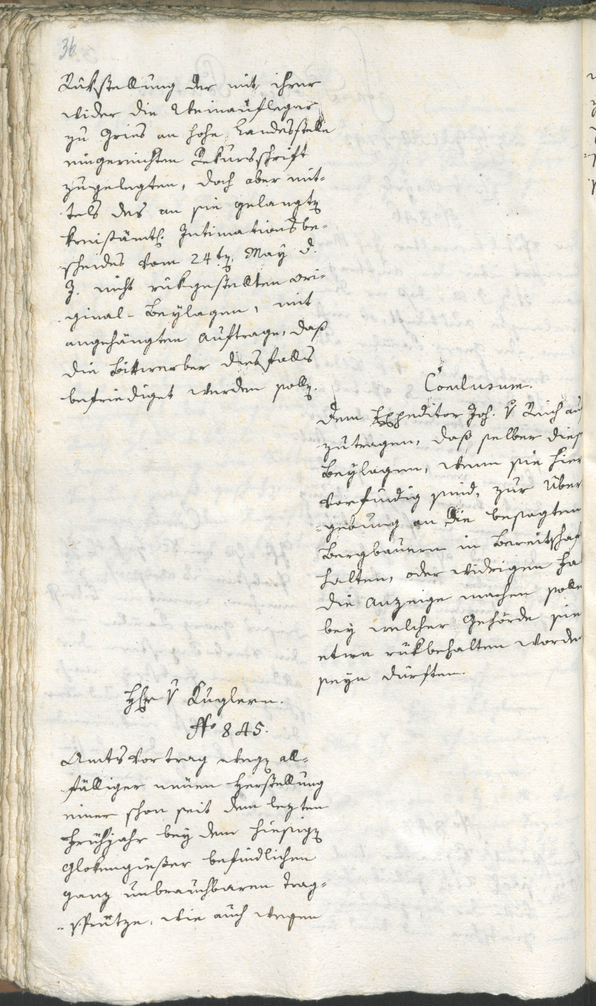 36
Rükstellung der mit ihrer
wider die Weinaufleger
zu Gries an hohe Landesstelle
eingereichten Rekursschrift
zugelegten, doch aber mit-
tels des an sie gelangten
kreisämtl. Intimationsbe-
scheides vom 24ten May d.
J. nicht rükgestellten Ori-
ginal-Beylagen, mit
angehängten Auftrage, daß
die Bittwerber diesfalls
befriediget werden sollen.
Conclusum.
Dem Expeditor Joh. v Reich auf
zutragen, daß selber diese
Beylagen, wenn sie hier
vorfindig sind, zur Über
gebung an die besagten
Bergbauern in Bereitschaf
halten, oder widrigen Fa
die Anzeige machen solle
bey welcher Gehörde sie
etwa rükbehalten worde
seyn dürften.
Hr. v Kuglern.
No 845.
Amts Vortrag wegen all-
fälliger neuen Herstellung
einer schon seit dem lezten
Frühjahr bey dem hiesigen
Glokengießer befindlichen
ganz unbrauchbaren Trag-
sprütze, wie auch wegen